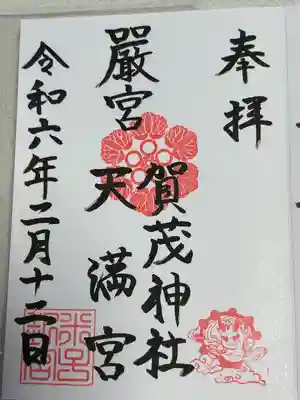 奉拝
賀茂神社
嚴宮
天満宮
令和六年二月十二日